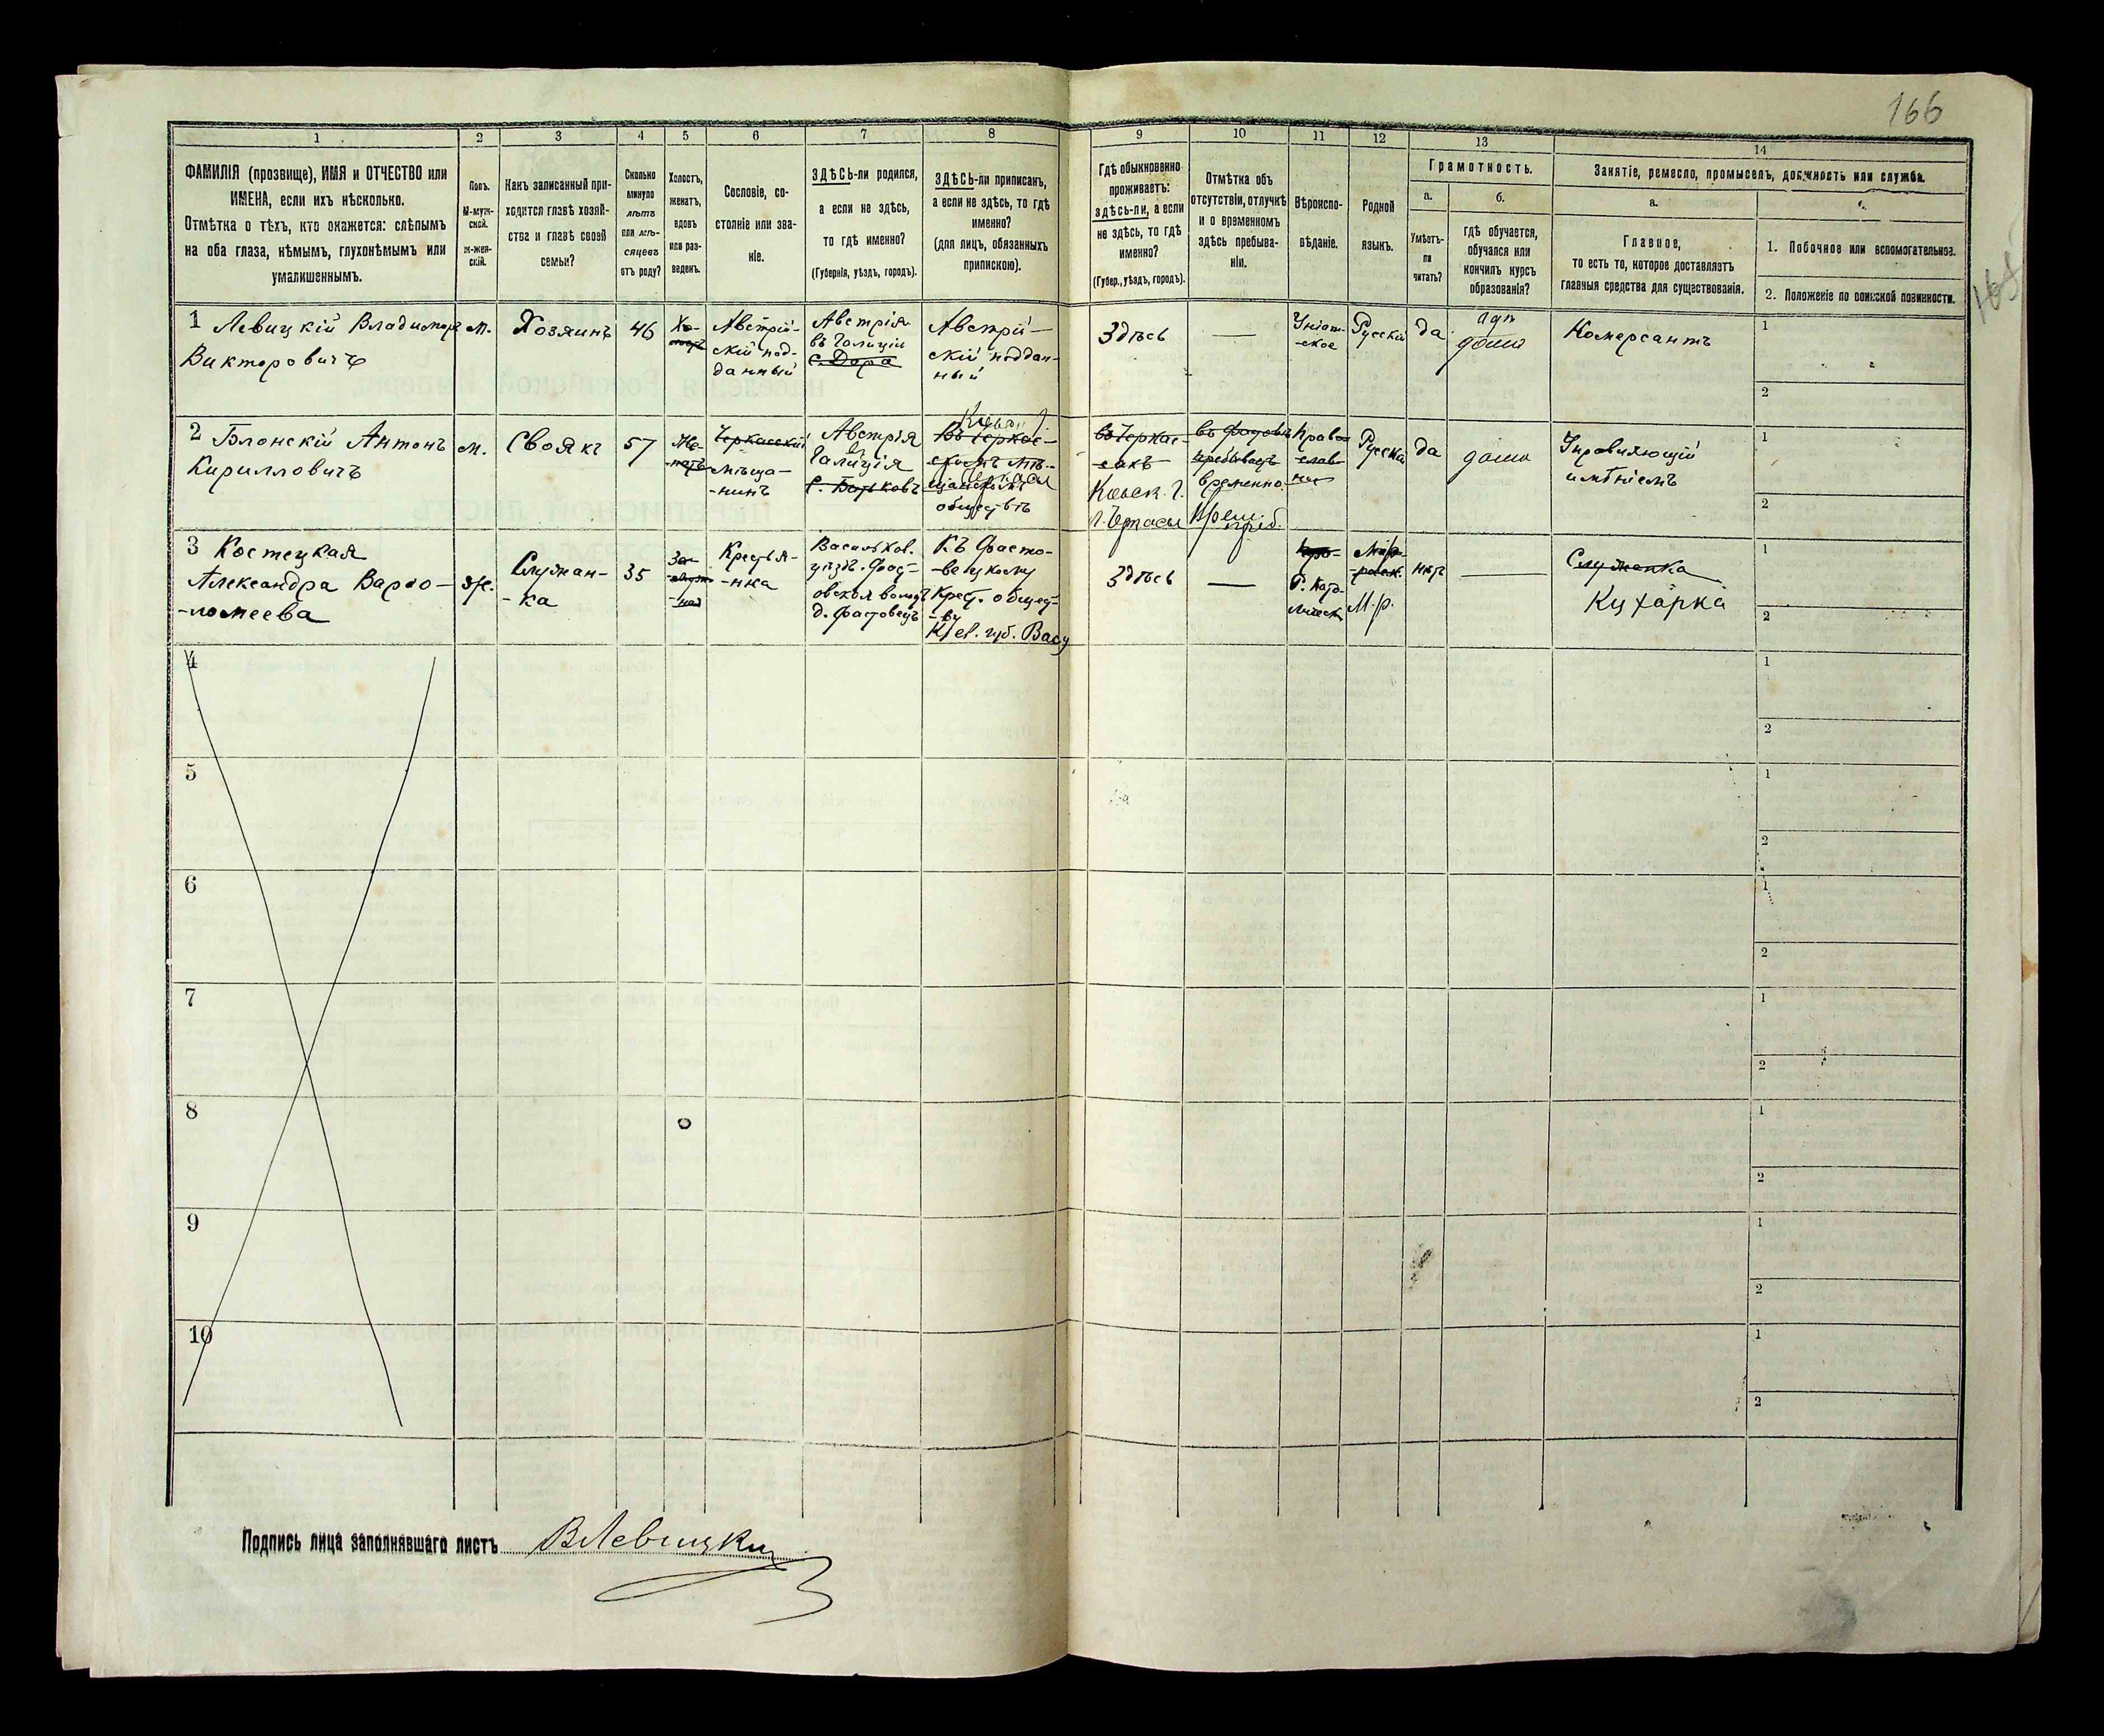 166
165
1 2 3 4 5 6 7 8 9 10 11 12 13 14
ФАМИЛІЯ (прозвище), ИМЯ и ОТЧЕСТВО или
ИМЕНА, если ихъ нѣсколько.
Отмѣтка о тѣхъ, кто окажется: слѣпымъ
на оба глаза, нѣмымъ, глухонѣмымъ или
умалишеннымъ.
Полъ.
М-муж-
ской.
ж-жен-
скій.
Какъ записанный при-
ходится главѣ хозяй-
ства и главѣ своей
семьи?
Сколько
минуло
лѣтъ
или мѣ-
сяцевъ
отъ роду?
Холостъ,
женатъ,
вдовъ
или раз-
веденъ.
Сословіе, со-
стояніе или зва-
ніе.
ЗДѢСЬ-ли родился,
а если не здѣсь,
то гдѣ именно?
(Губернія, уѣздъ, городъ).
ЗДѢСЬ-ли приписанъ,
а если не здѣсь, то гдѣ
именно?
(для лицъ, обязанныхъ
припискою).
Гдѣ обыкновенно
проживаетъ:
здѣсь-ли, а если
не здѣсь, то гдѣ
именно?
(Губер., уѣздъ, городъ).
Отмѣтка объ
отсутствіи, отлучкѣ
и о временномъ
здѣсь пребыва-
ніи.
Вѣроиспо-
вѣданіе.
Родной
языкъ.
Грамотность.
а.
Умѣетъ-
ли
читать?
б.
гдѣ обучается,
обучался или
кончилъ курсъ
образованія?
Занятіе, ремесло, промыселъ, должность или служба.
а.
Главное,
то есть то, которое доставляетъ
главныя средства для существованія.
1. Побочное или вспомогательное.
2. Положеніе по воинской повинности.
1 Левицкій Владимиръ
Викторовичъ
м.
Хозяинъ
46
Хо-
Австрій-
скій под-
данный
Австрія
въ Галиціи
с. Дора
Австрій-
скій поддан-
ный
Здѣсь
—
Уніат-
ское
Русскій
да
дома
Комерсантъ
1
2
2 Блонскій Антонъ
Кирилловичъ
м.
Своякъ
57
Же-
-натъ
Черкасскій
мѣща-
-нинъ
Австрія
Галиція
с. Батьковъ
Въ Черкас-
скомъ мѣ-
щанскомъ
обществѣ
въ Черкас-
сахъ
Кіевск. г.
г. Черкасы
въ Фастовѣ
пребываетъ
временно.
Врем. преб.
Право
слав-
ное
Русскій
да
дома
Управляющій
имѣніемъ
1
2
3 Костецкая
Александра Варѳо-
-ломеева
ж.
Служан-
-ка
35
За-
Крестья-
-нка
Васильков.
уѣздъ. Фас-
овской волос
д. Фастовецъ
Къ Фасто-
-вецкому
Крест. общес-
-ву
Кіев. губ. Вас у
Здѣсь
—
Р. Като-
лическ
М.р.
нѣтъ
—
Служанка
Кухарка
1
2
4
1
2
5
1
2
6
1
2
7
1
2
8
1
2
9
1
2
10
1
2
Подпись лица заполнявшаго листъ ВЛевицкій